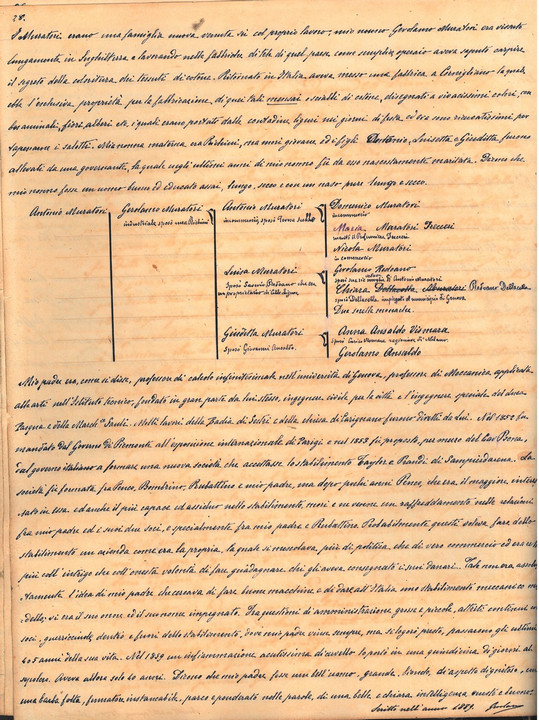 28.
I Muratori erano una famiglia nuova venuta su col proprio lavoro, mio nonno Gerolamo Muratori era vissuto
lungamente in Inghilterra e lavorando nelle fabbriche di tela di quel paese come semplice operaio aveva saputo carpire
il segreto della coloritura dei tessuti di cotone. Ritornato in Italia, aveva messo una fabbrica a Cornigliano la quale
ebbe l'esclusiva proprietà per la fabbricazione di quei tali mensai e scialli di cotone, disegnati a vivacissimi colori, con
beniamini, fiori, alberi etc, i quali erano portati dalle contadine liguri nei giorni di festa ed ora sono ricercatissimi per
tapessare i salotti. Mia nonna materna era Picchini, ma morì giovane ed i figli Antonio, Luisetta e Giuditta furono
allevati da una governante, la quale negli ultimi anni di mio nonno fu da esso nascostamente maritata. Dicono che
mio nonno fosse un uomo buono ed educato assai, lungo, secco e con un naso pure lungo e secco.
Antonio Muratori
Gerolamo Muratori
industriale, sposò una Picchini
Antonio Muratori
in commercio, sposò
Domenico Muratori
in commercio
Maria Muratori Treccesi
Nicola Muratori
in commercio
Luisa Muratori
sposò
Gerolamo Pedrano
Chiara Pedrano Dellacella
sposò Dellacella, impiegato al municipio di Genova
Due sorelle monache
Giuditta Muratori
sposò Giovanni Ansaldo
Anna Ansaldo Vismara
sposò Vismara ragioniere di Milano
Gerolamo Ansaldo
Mio padre era, come si disse, professore di calcolo infinitesimale nell'università di Genova, professore di Meccanica applicata
alle arti nell'Istituto tecnico, fondato in gran parte da lui stesso, ingegnere civile per la città e l'ingegnere speciale del duca
Pasqua e della March.sa Sauli. Molti lavori della Badia di Sestri e della chiesa di Carignano furono diretti da Lui. Nel 1852 fu
mandato dal Governo di Piemonte all'esposizione internazionale di Parigi e nel 1853 fu proposto, per mezzo del Cav Bona,
dal governo italiano a formare una nuova società che accettasse lo stabilimento Taylor e Prandi di Sampierdarena. La
società fu formata fra Penco, Bombrino, Rubattino e mio padre, ma dopo pochi anni Penco, che era il maggiore interes-
sato in essa ed anche il più capace ed assiduo nello stabilimento, morì e ne venne un raffreddamento nelle relazioni
fra mio padre ed i suoi due soci, e specialmente fra mio padre e Rubattino. Probabilmente, questi voleva fare dello
stabilimento un'azienda come era la propria, la quale si mescolava, più di politica, che di vero commercio ed era retta
più coll'intrigo che coll'onesta volontà di fare guadagnare chi gli aveva consegnato i suoi danari. Tale non era assolu-
tamente l'idea di mio padre che cercava di fare buone macchine e di dare all'Italia uno stabilimento meccanico mo-
dello; vi era il suo onore ed il suo nome impegnato. Fra questioni di amministrazione grosse e piccole, attriti continui coi
soci, guerricciuole dentro e fuori dello stabilimento, dove mio padre vinse sempre, ma si logorò presto, passarono gli ultimi
4 o 5 anni della sua vita. Nel 1859 un'infiammazione acutissima di cervello lo portò in una quindicina di giorni al
sepolcro. Aveva allora solo 40 anni. Dicono che mio padre fosse un bell'uomo, grande, biondo, di aspetto dignitoso, con
una barba folta, fumatore instancabile, parco e ponderato nelle parole, di una bella e chiara intelligenza, onesto e buono.
Scritto nell'anno 1889.